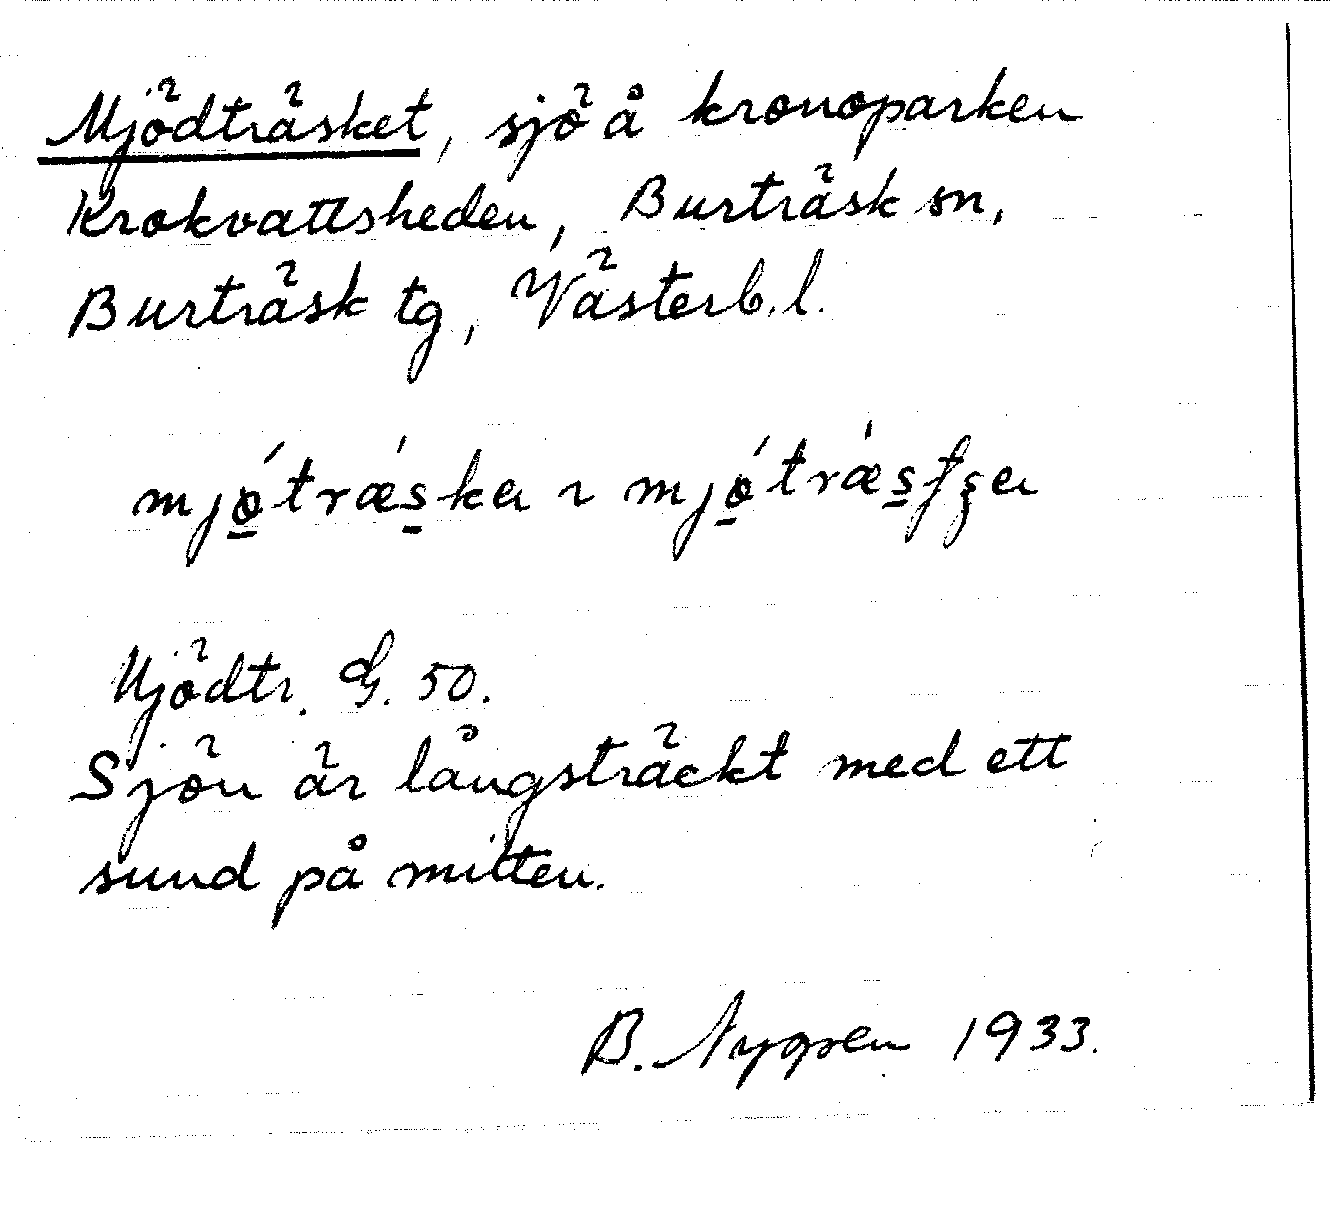 Mjödträsket, sjö å kronoparken
Krokvattsheden, Burträsk sn,
Burträsk tg, Västerb. l.
Mjödtr. G. 50.
Sjön är långsträckt med ett
sund på mitten.
B. Nygren 1933.